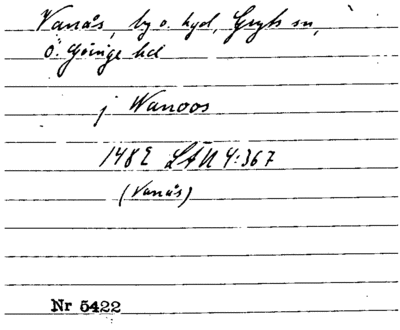 Vanås, by o. kyd, Gryts sn,
Ö. Göinge hd
j Wanoos
1482 LÄU 4:367
(Vanås)
Nr 5422